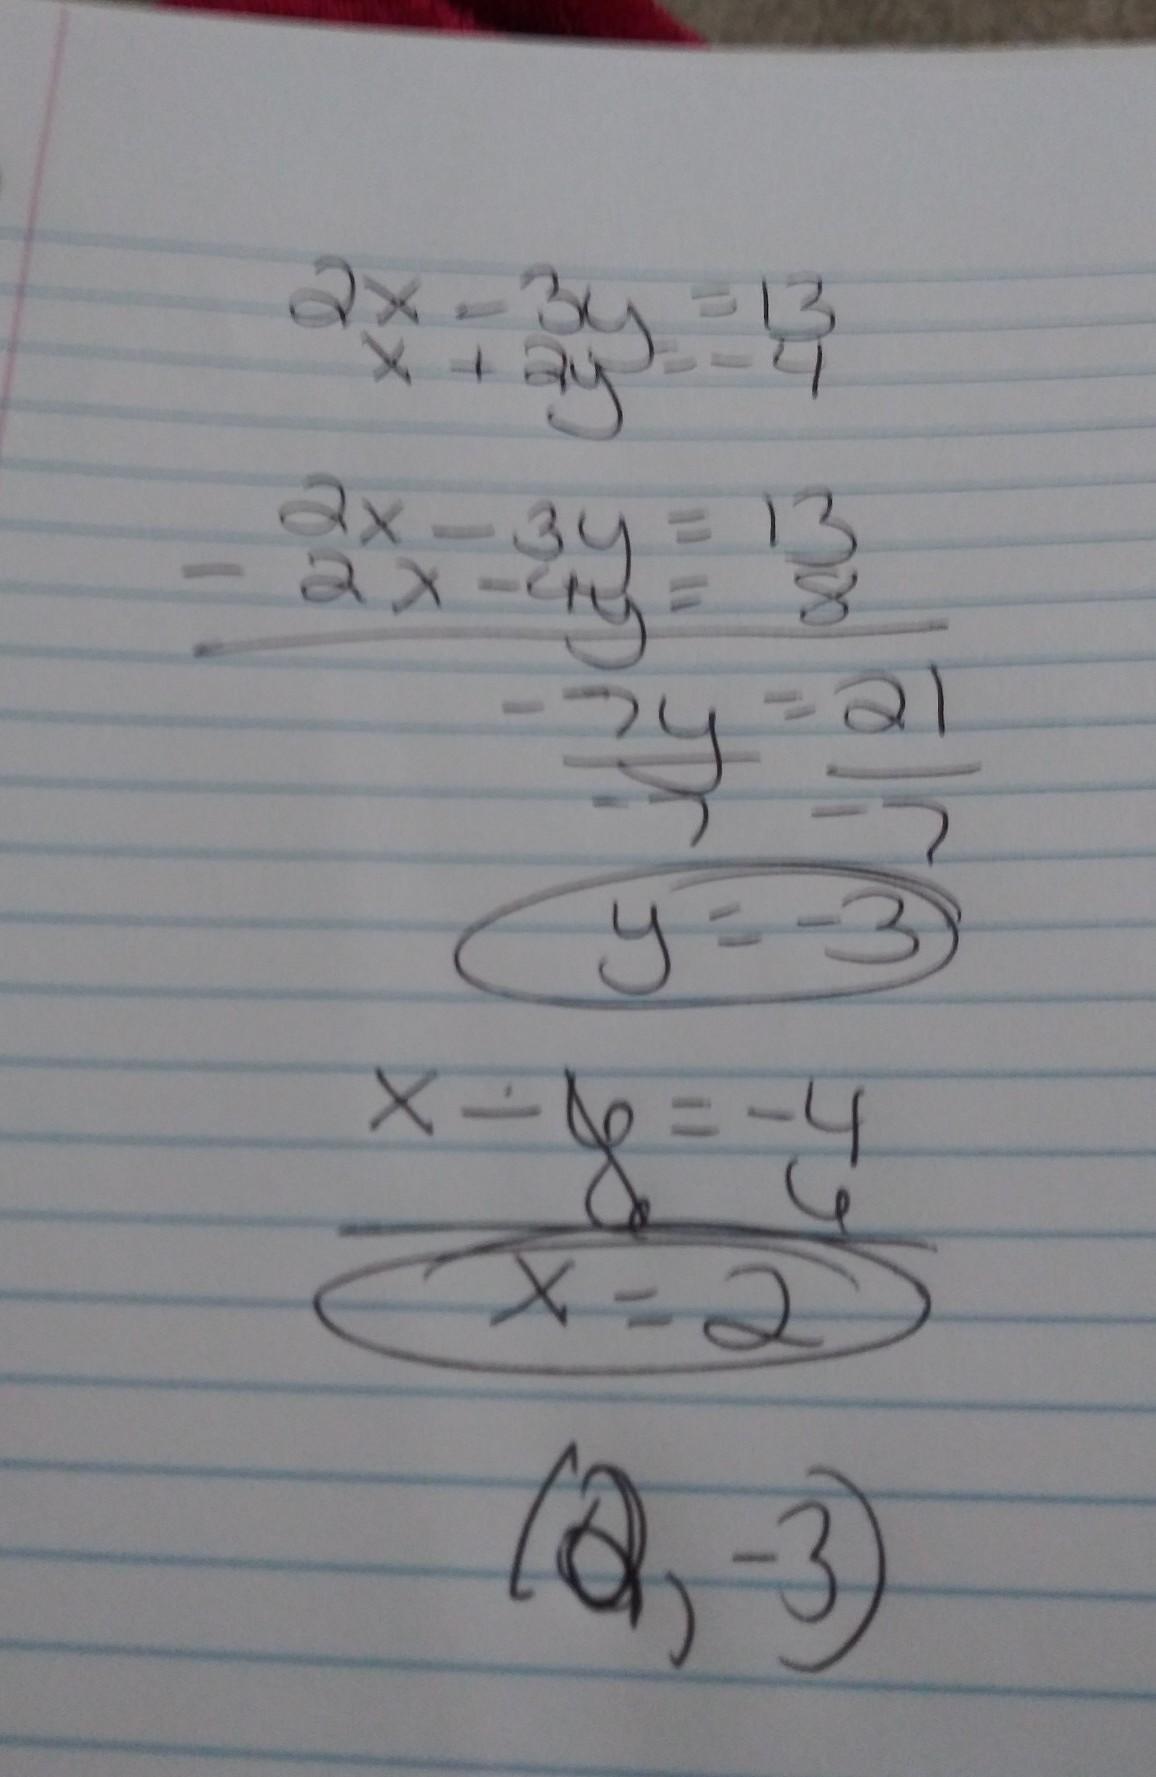 2x - 3y = 13
x + 2y = -4
2x - 3y = 13
- 2x - 4y = 8
-7y = 21
-7 -7
y = -3
x - 6 = -4
6 6
x = 2
(2, -3)